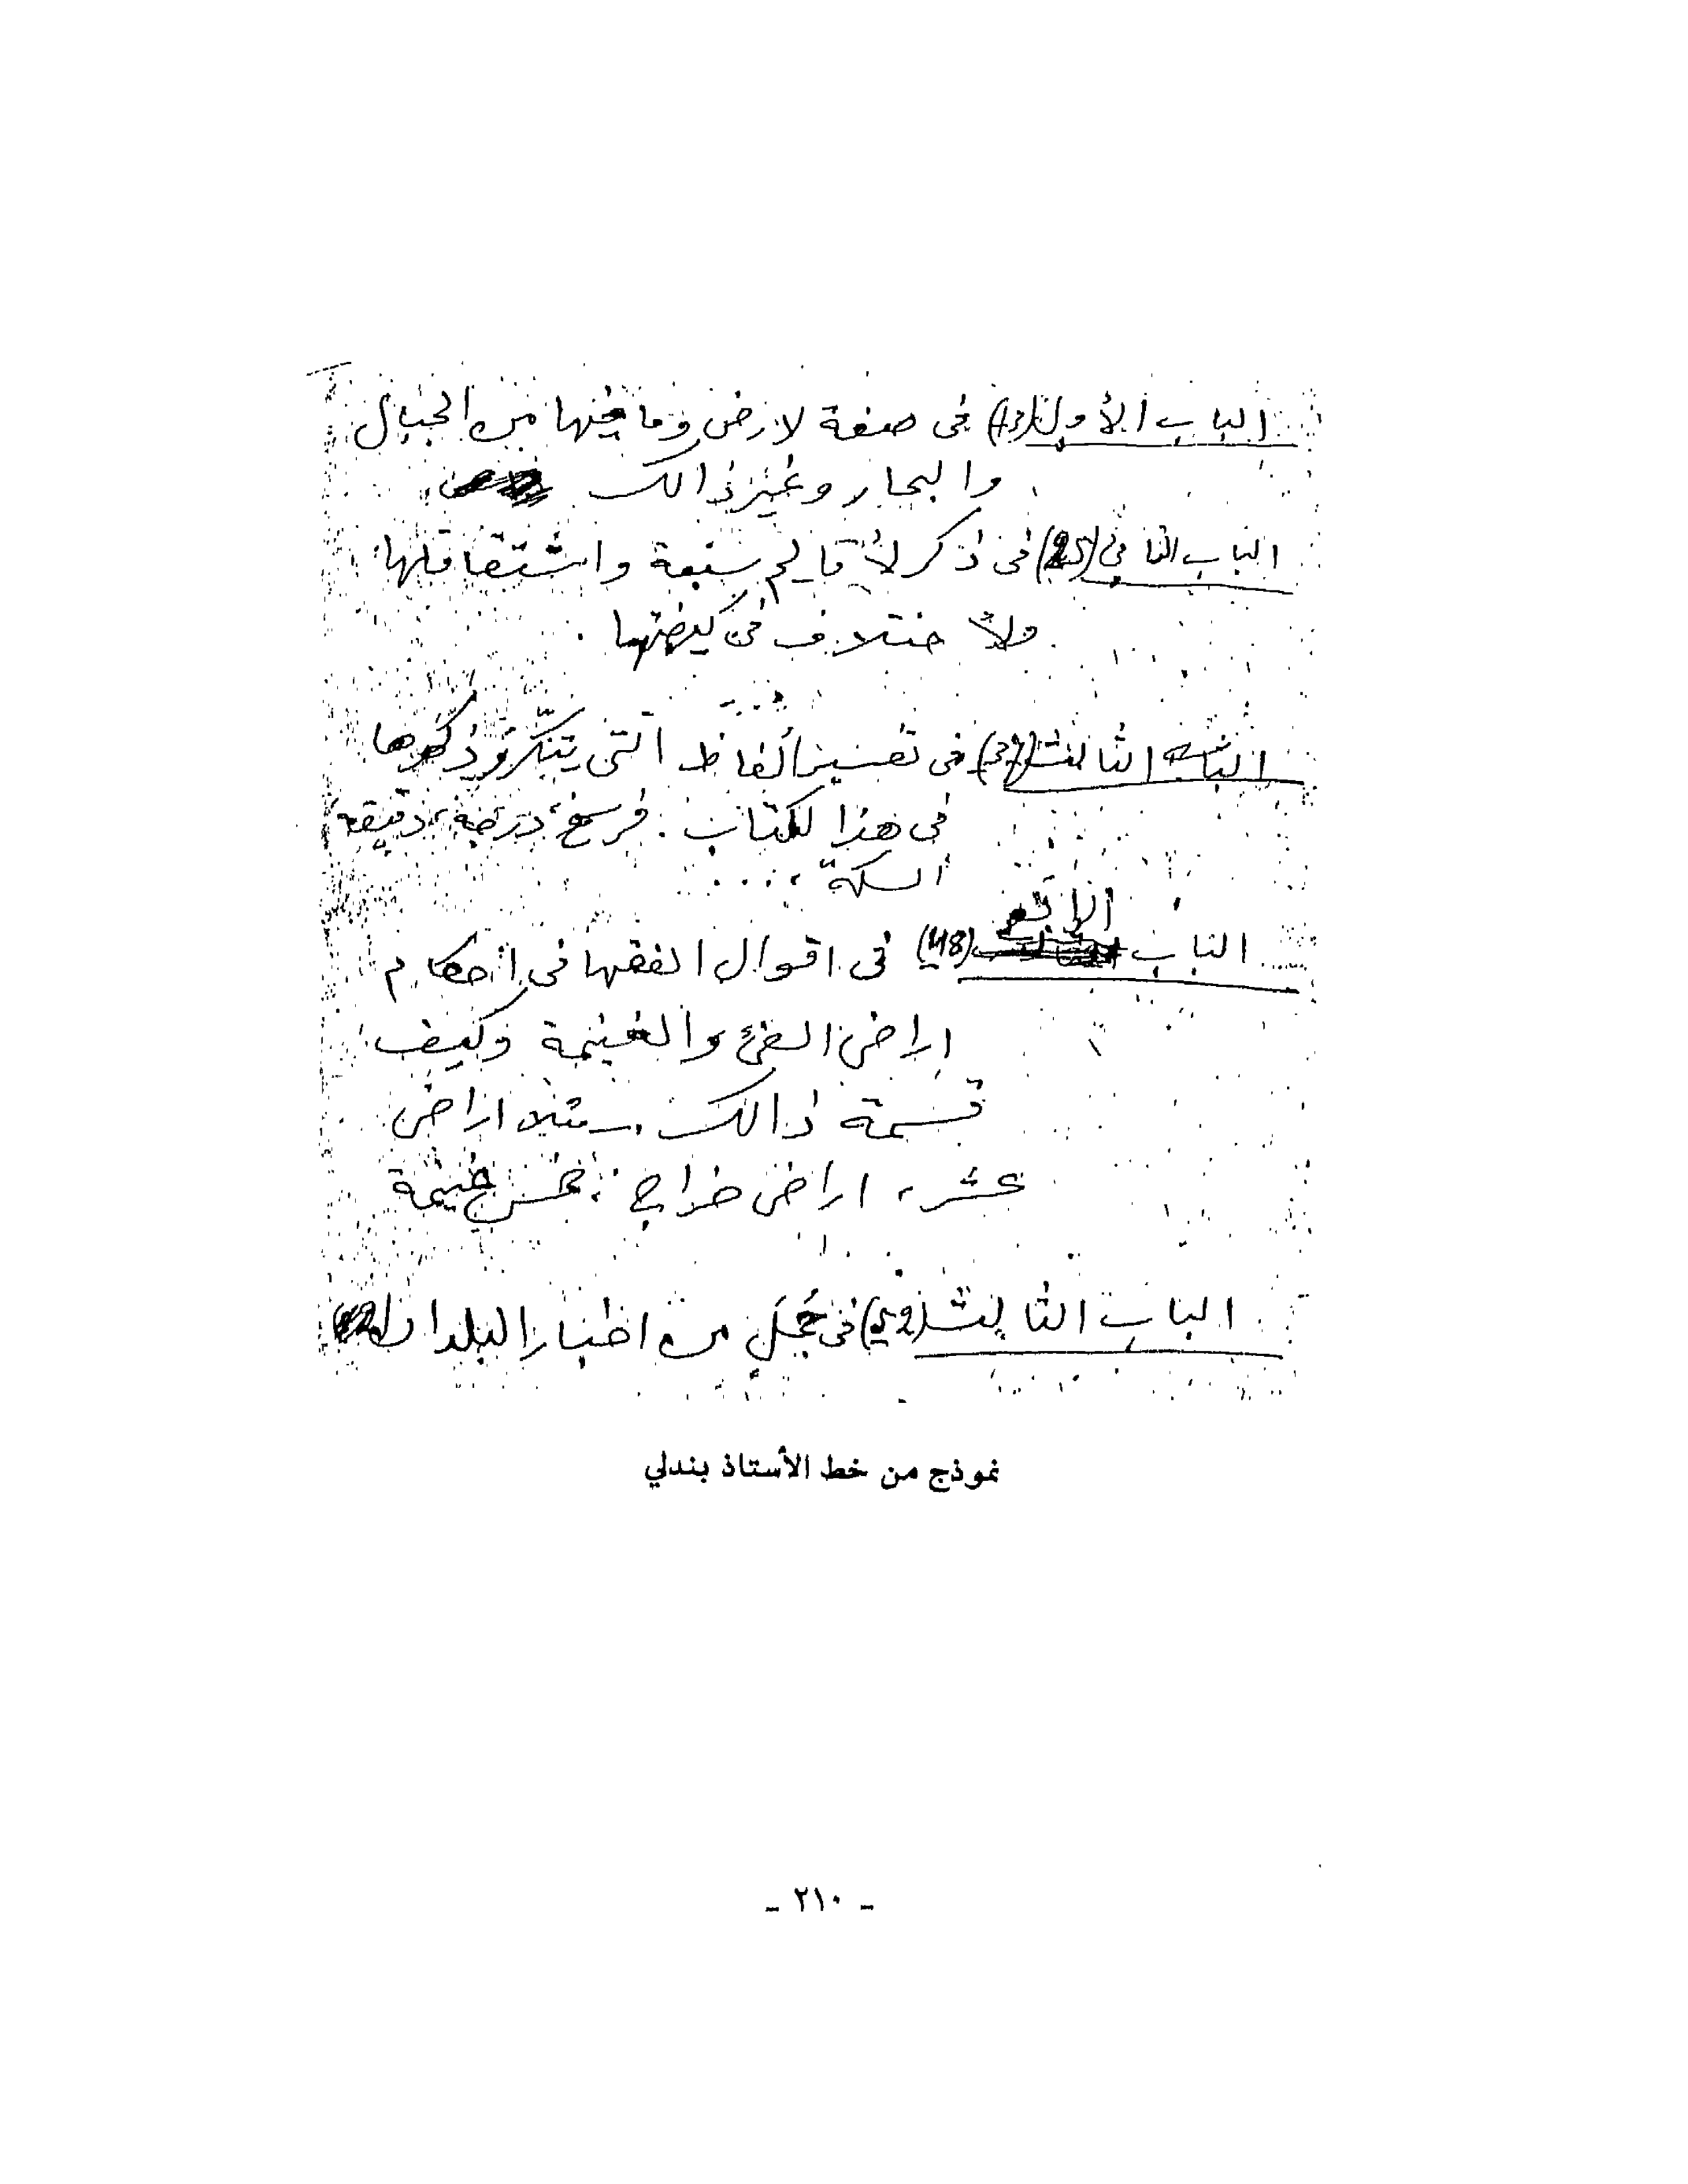 الباب الأول (13) فى صفة لارض وما فيها من الجبال
والبحار وغير ذالك
الباب الثانى (25) فى ذكر لأقاليم سبعة واشتقاقلها
ولأ ختلاف فى كيفيتها .
الباب الثالث فى تفسير ألفاظ التى يتكرّر ذكرها
فى هذا لكتاب : فرسخ، درجة، دقيقة،
السكة ، ....
الباب الرابع (48) فى اقوال الفقها فى احكام
اراضى الفئ والغنيمة وكيف
قسمة ذالك . مثلا اراضى
عشر ، اراضى خراج ، خمس غنيمة
الباب الثالث (52) فى جُمَلٍ من اخبار البلدان
نموذج من خط الأستاذ بندلي
- ٢١٠ -